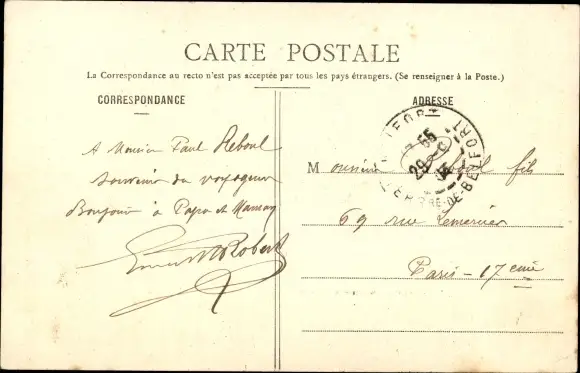 CARTE POSTALE
La Correspondance au recto n'est pas acceptée par tous les pays étrangers. (Se renseigner à la Poste.)
CORRESPONDANCE
A Monsieur Paul Reboul
souvenir du voyageur
Bonjour à Papa et Maman
Robert
ADRESSE
BELFORT
TERRRE-DE-BELFORT
Monsieur Reboul fils
69 rue Lemercier
Paris - 17eme